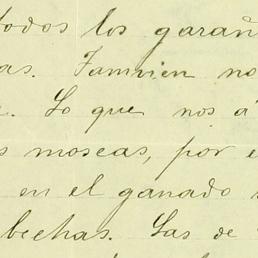 todos los garañ
as. Tamvien no
Lo que nos á
s moscas, por e
en el ganado
bechas. Las de